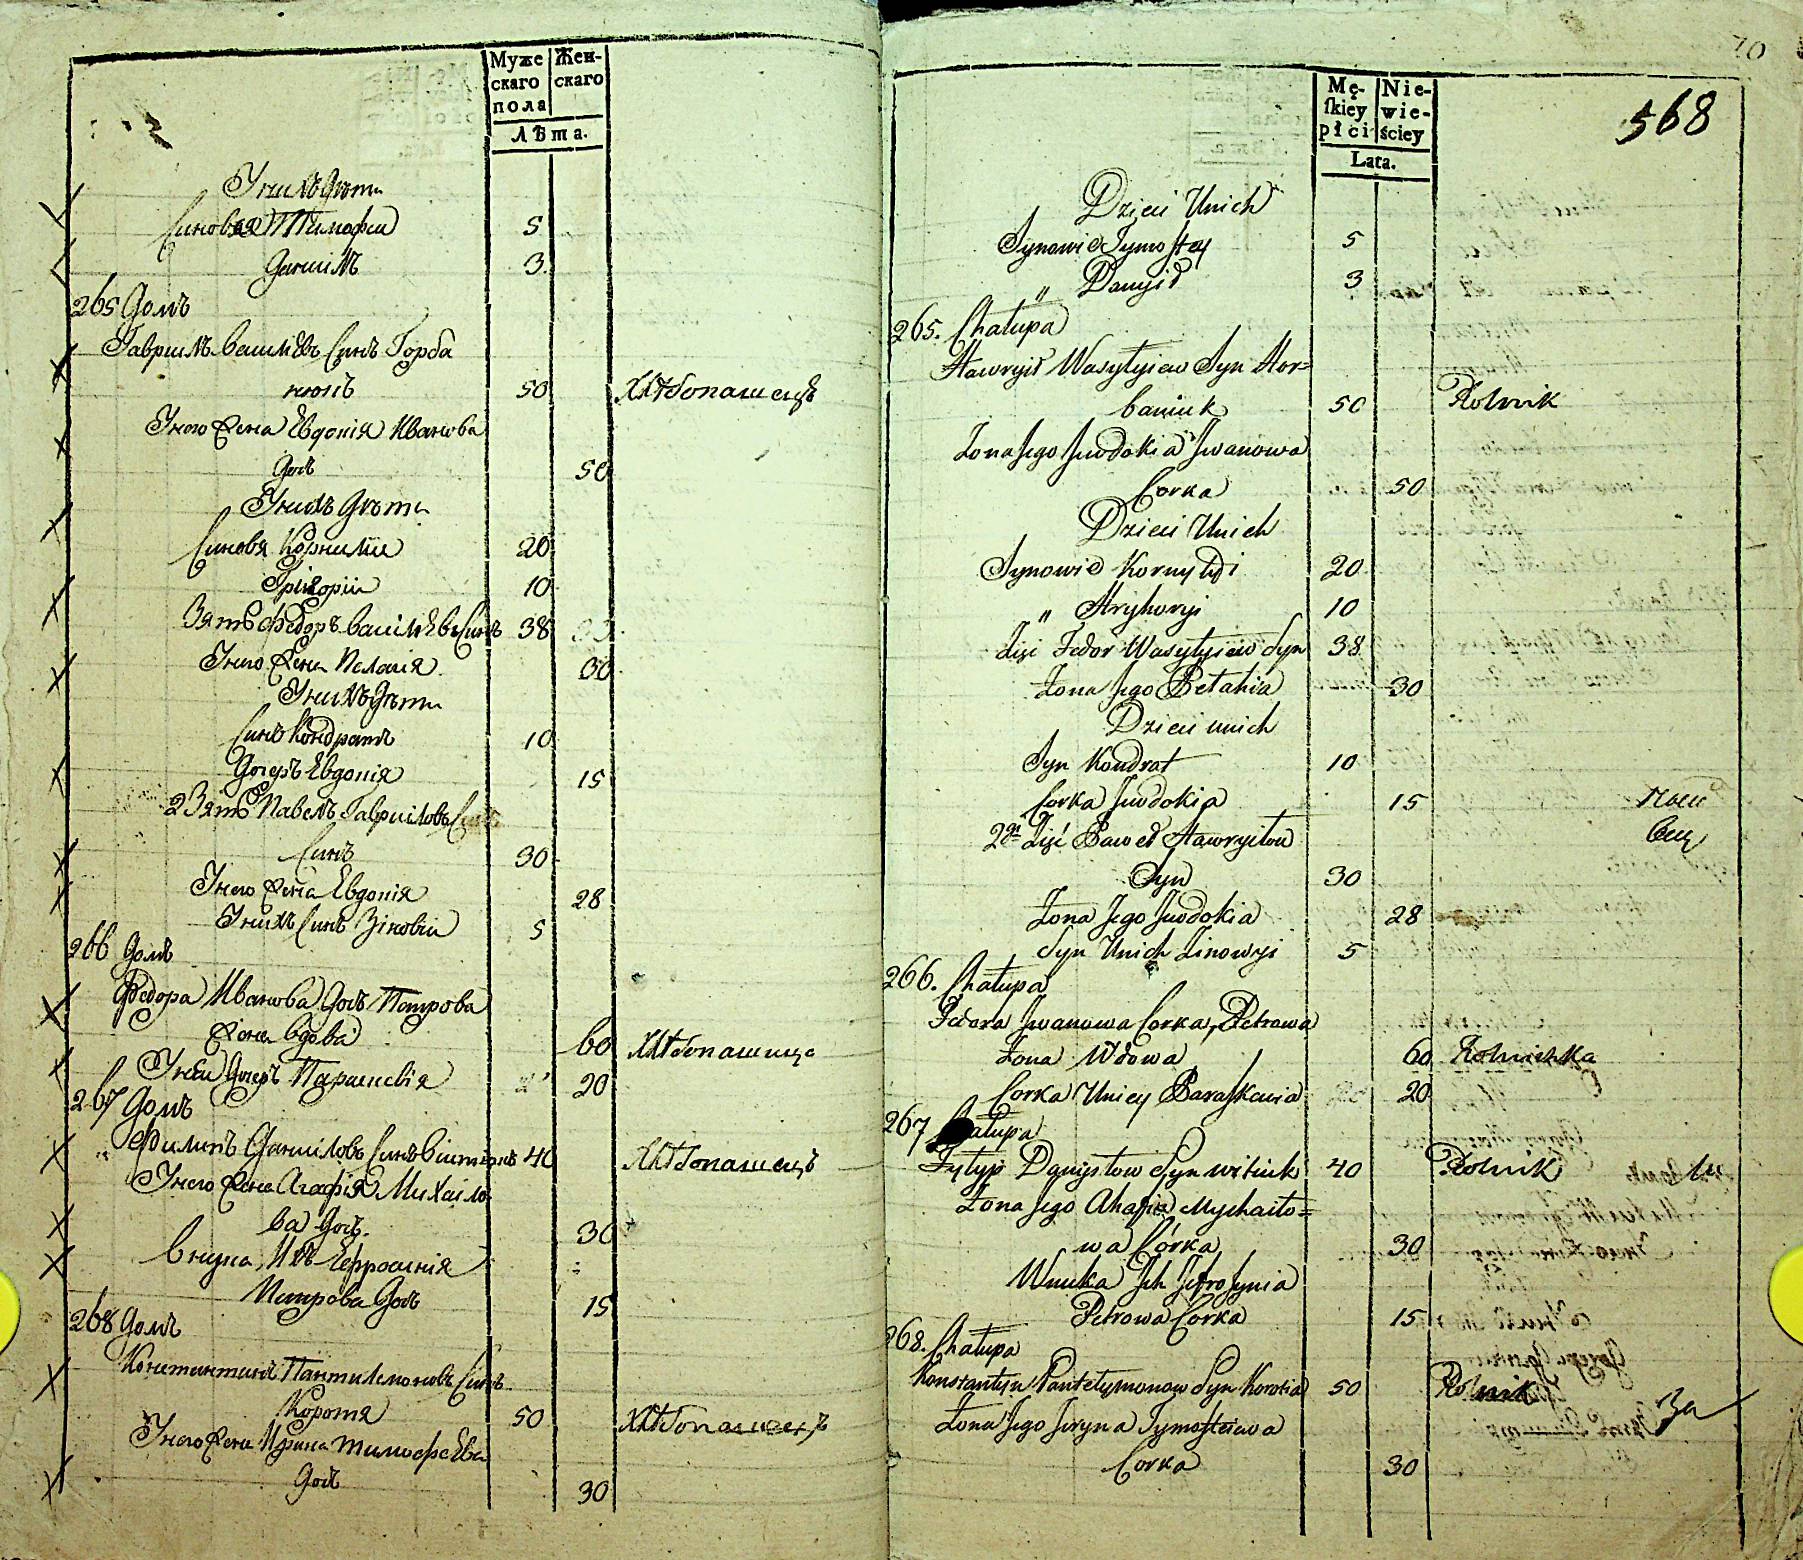 Муже
скаго
пола
Жен-
скаго
Лѣта.
Унихъ дѣти
Синовя Тимофей 5
Данилъ 3
265 Домъ
Гаврилъ Васильевъ Синъ Горба
нюкъ 50 Хлѣбопашецъ
Унего Жена Евдокія Иванова
Дочь 50
Унихъ Дѣти
Синовя Корнилий 20
Григорій 10
Зять Федоръ Васильевъ Синъ 38
Унего Жена Пелагія 30
Унихъ Дѣти
Синъ Кондратъ 10
Дочеръ Евдокія 15
2 Зять Павелъ Гавриловъ
Синъ 30
Унего Жена Евдокія 28
Унихъ Синъ Зіновій 5
266 Домъ
Федора Иванова Дочь Петрова
Жена вдова 60 Хлѣбопашица
Унеи Дочеръ Параскевія 20
267 Домъ
Филипъ Даниловъ Синъ Вітюкъ 40 Хлѣбопашецъ
Унего Жена Агафія Михайло
ва Дочь 30
Внучка Ихъ Ефросинія
Петрова Дочь 15
268 Домъ
Константинъ Пантилемоновъ Синъ
Коротя 50 Хлѣбопашецъ
Унего Жена Ирина Тимофеева
Дочь 30
70
568
Mę-
ſkiey
płci
Nie-
wie-
ściey
Lata.
Dzieci Unich
Synowie Tymoftey 5
" Danyił 3
265. Chałupa
Hawryił Wasylyiew Syn Hor=
baniuk 50 Rolnik
Zona Jego Jewdokia Jwanowa
Corka 50
Dzieci Unich
Synowie Kornyłyi 20
" Hryhoryi 10
Zięć Fedor Wasylyiew Syn 38
Zona Jego Pelahia 30
Dzieci unich
Syn Kondrat 10
Corka Jewdokia 15
2gi Zięć Paweł Hawryłow
Syn 30
Zona Jego Jewdokia 28
Syn Unich Zinowyi 5
266. Chałupa
Fedora Jwanowa Corka, Petrowa
Zona Wdowa 60 Rolniczka
Corka Uniey Paraskewia 20
267 Chałupa
Fylyp Danyłow Syn Witiuk 40 Rolnik
Zona Jego Ahafia Mychaiło=
wa Córka 30
Wnuka Jch Jefrosynia
Petrowa Corka 15
268. Chałupa
Konstantyn Pantelymonow Syn Korotia 50 Rolnik
За
Zona Jego Jeryna Tymofteiewa
Corka 30